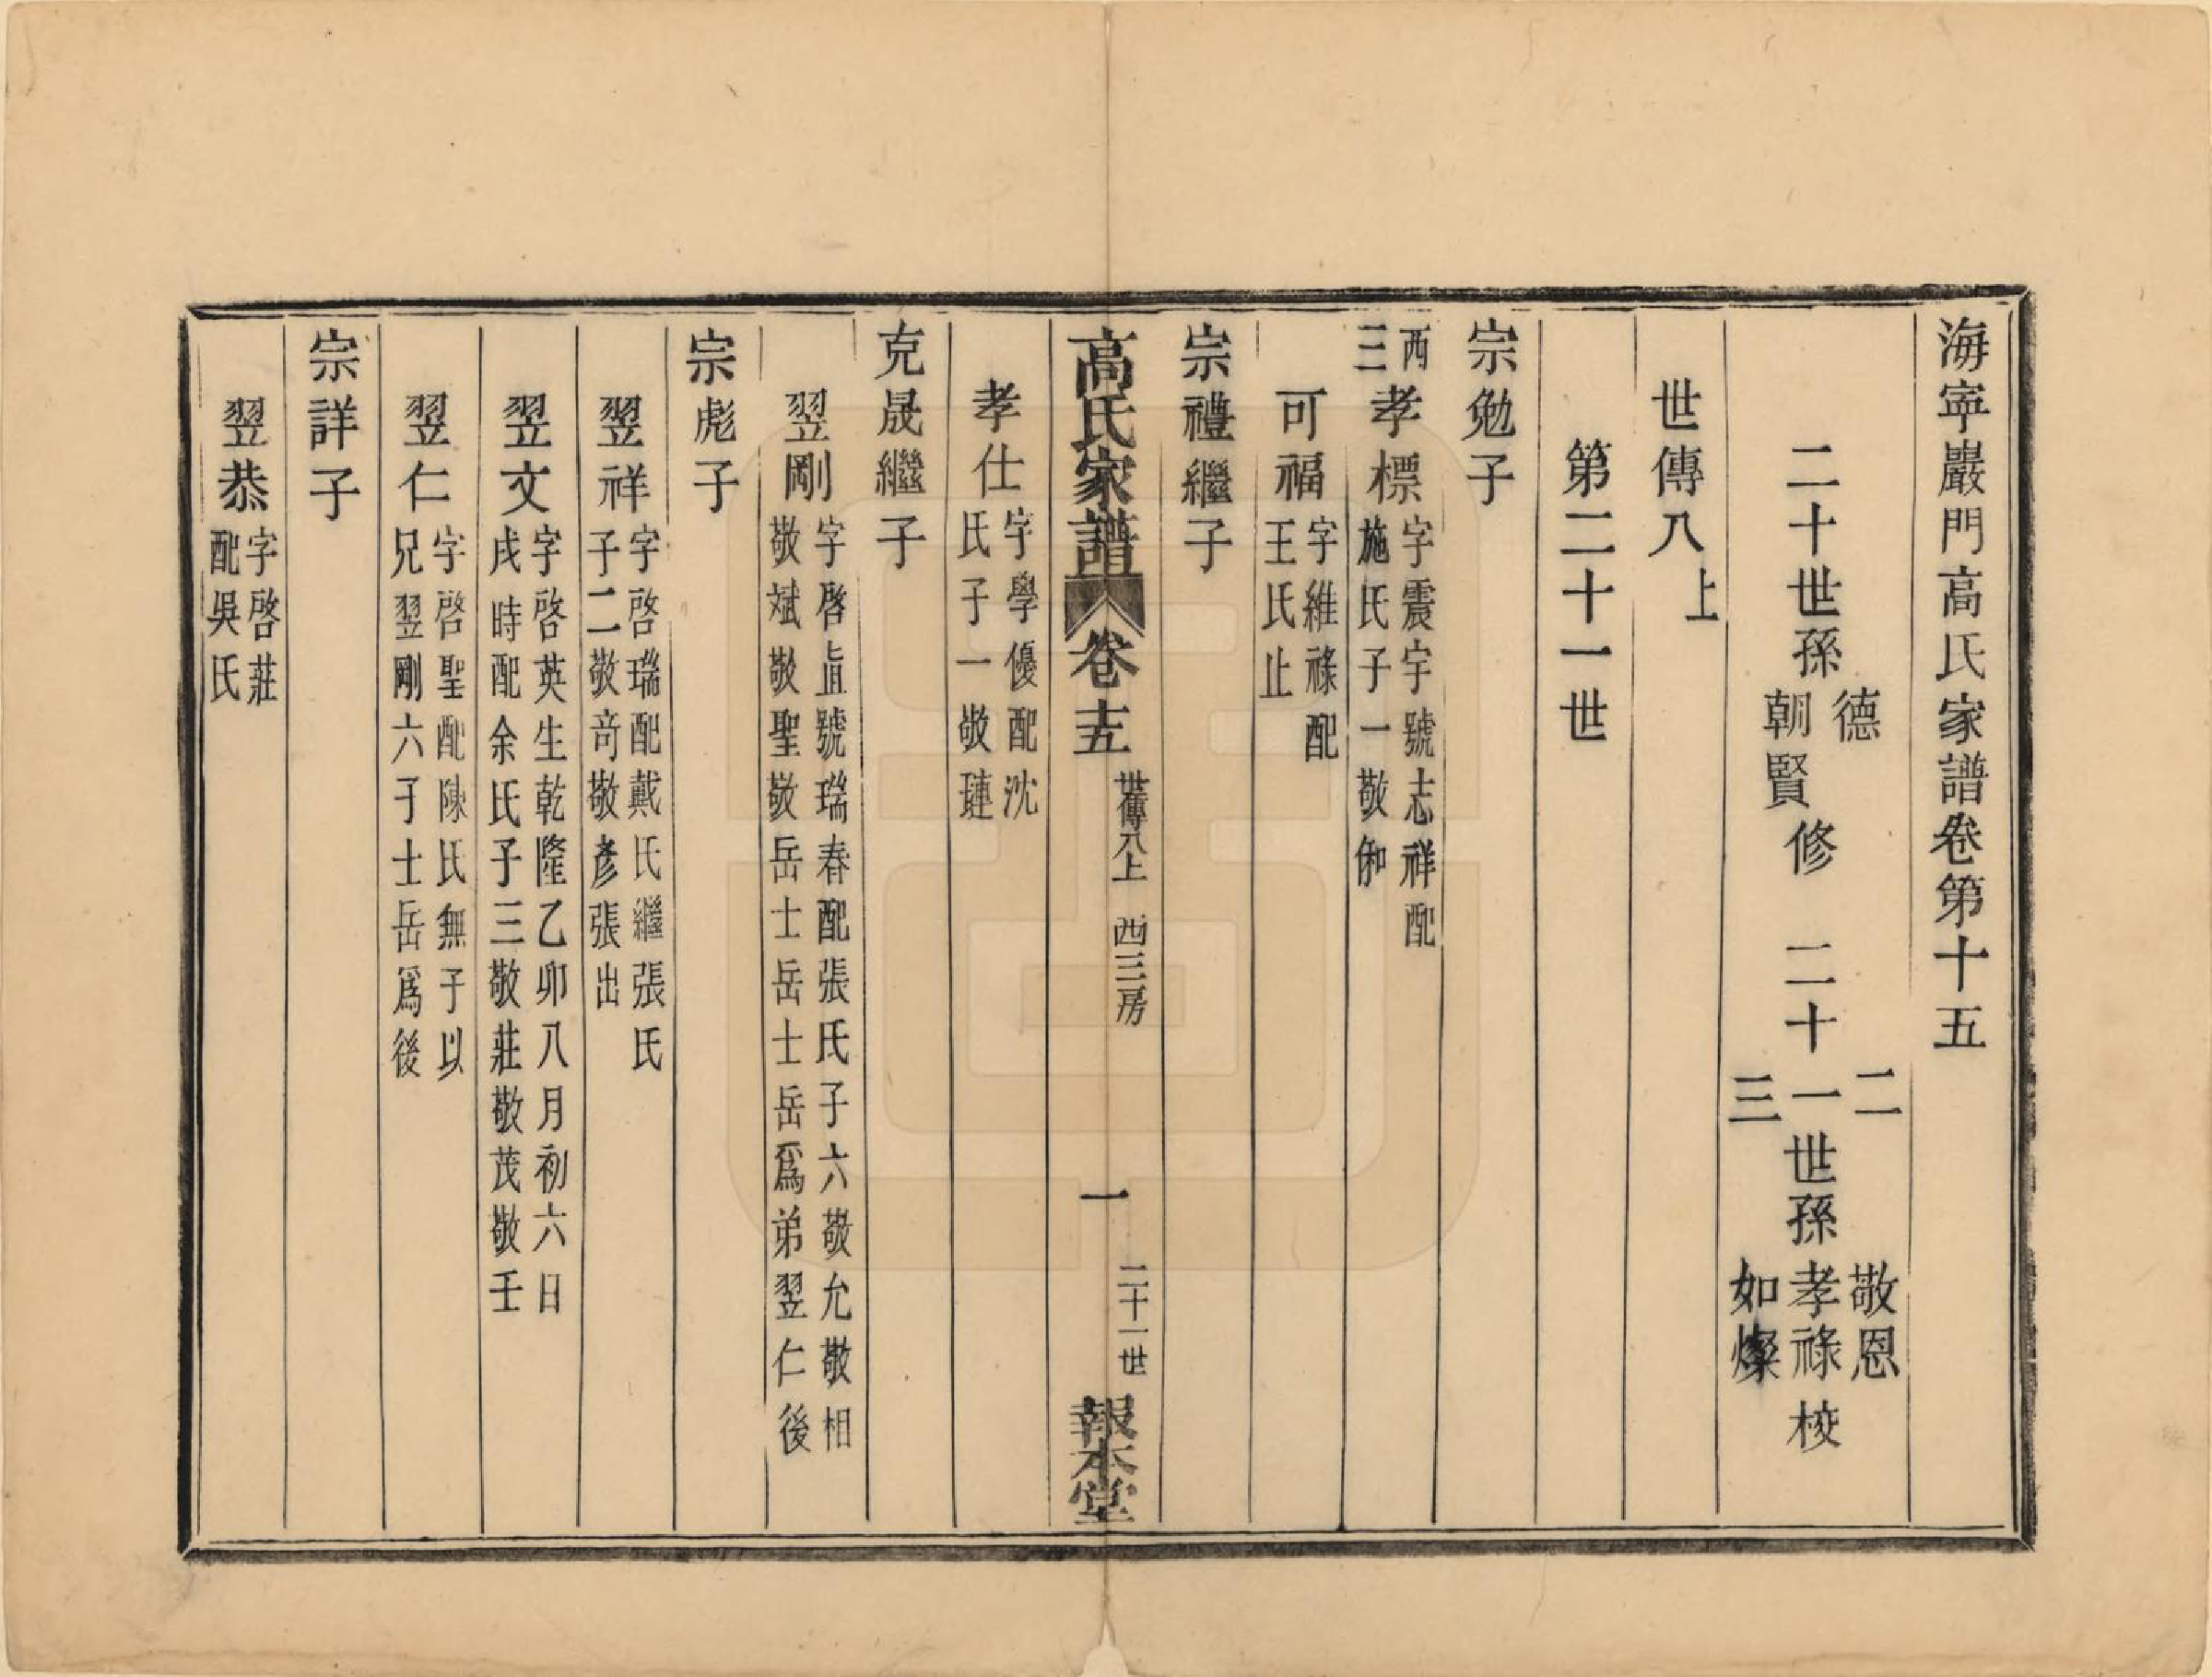 海寧巖門高氏家譜卷第十五
二十世孫德朝賢修 二十二一三世孫敬恩孝祿如燦校
世傳八上
第二十一世
宗勉子
西三孝標字震宇號志祥配
施氏子一敬俰
可福字維祿配
王氏止
宗禮繼子
高氏家譜 卷十五 世傳八上 西三房 一 二十一世 報本堂
孝仕字學優配沈
氏子一敬璉
克晟繼子
翌剛字啓直號瑞春配張氏子六敬允敬相
敬斌敬聖敬岳士岳士岳爲弟翌仁後
宗彪子
翌祥字啓瑞配戴氏繼張氏
子二敬竒敬彥張出
翌文字啓英生乾隆乙卯八月初六日
戌時配余氏子三敬莊敬茂敬壬
翌仁字啓聖配陳氏無子以
兄翌剛六子士岳爲後
宗詳子
翌恭字啓莊
配吳氏